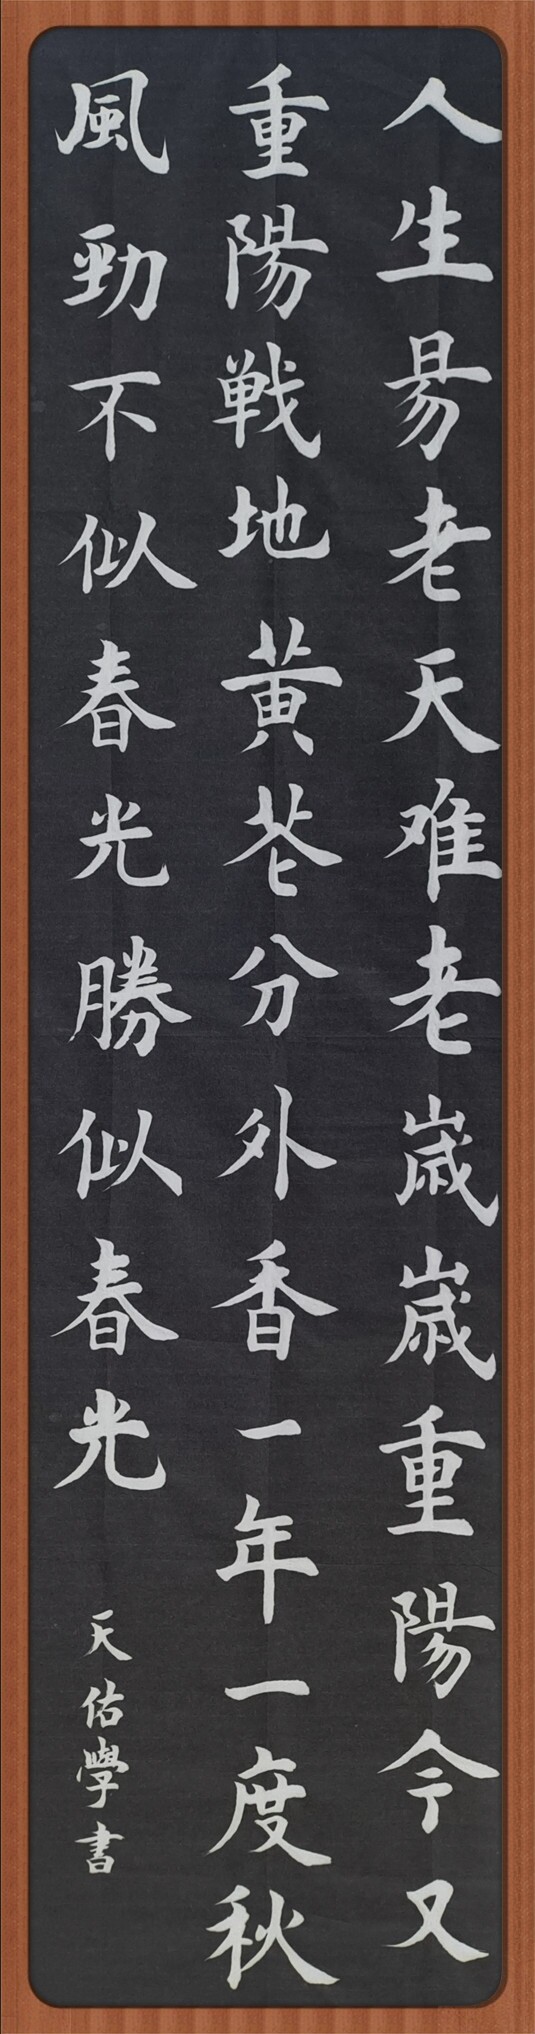 人生昜老天难老歳歳重陽今又
重陽戦地黄芲分外香一年一度秋
風勁不似春光勝似春光
天佑學書